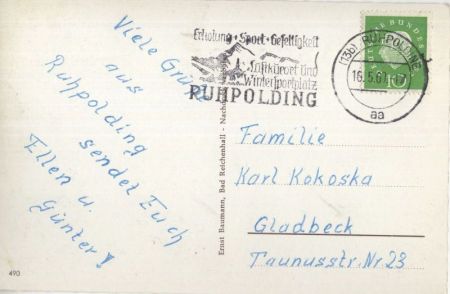 Viele Grüße
aus
Ruhpolding
sendet Euch
Ellen u.
Günter!
490
Ernst Baumann, Bad Reichenhall - Nachdr
Erholung • Sport • Geselligkeit
Luftkurort und
Wintersportplatz
RUHPOLDING
(13b) RUHPOLDING
16.5.61
aa
DEUTSCHE BUNDESPOST
10
Familie
Karl Kokoska
Gladbeck
Taunusstr. Nr 23